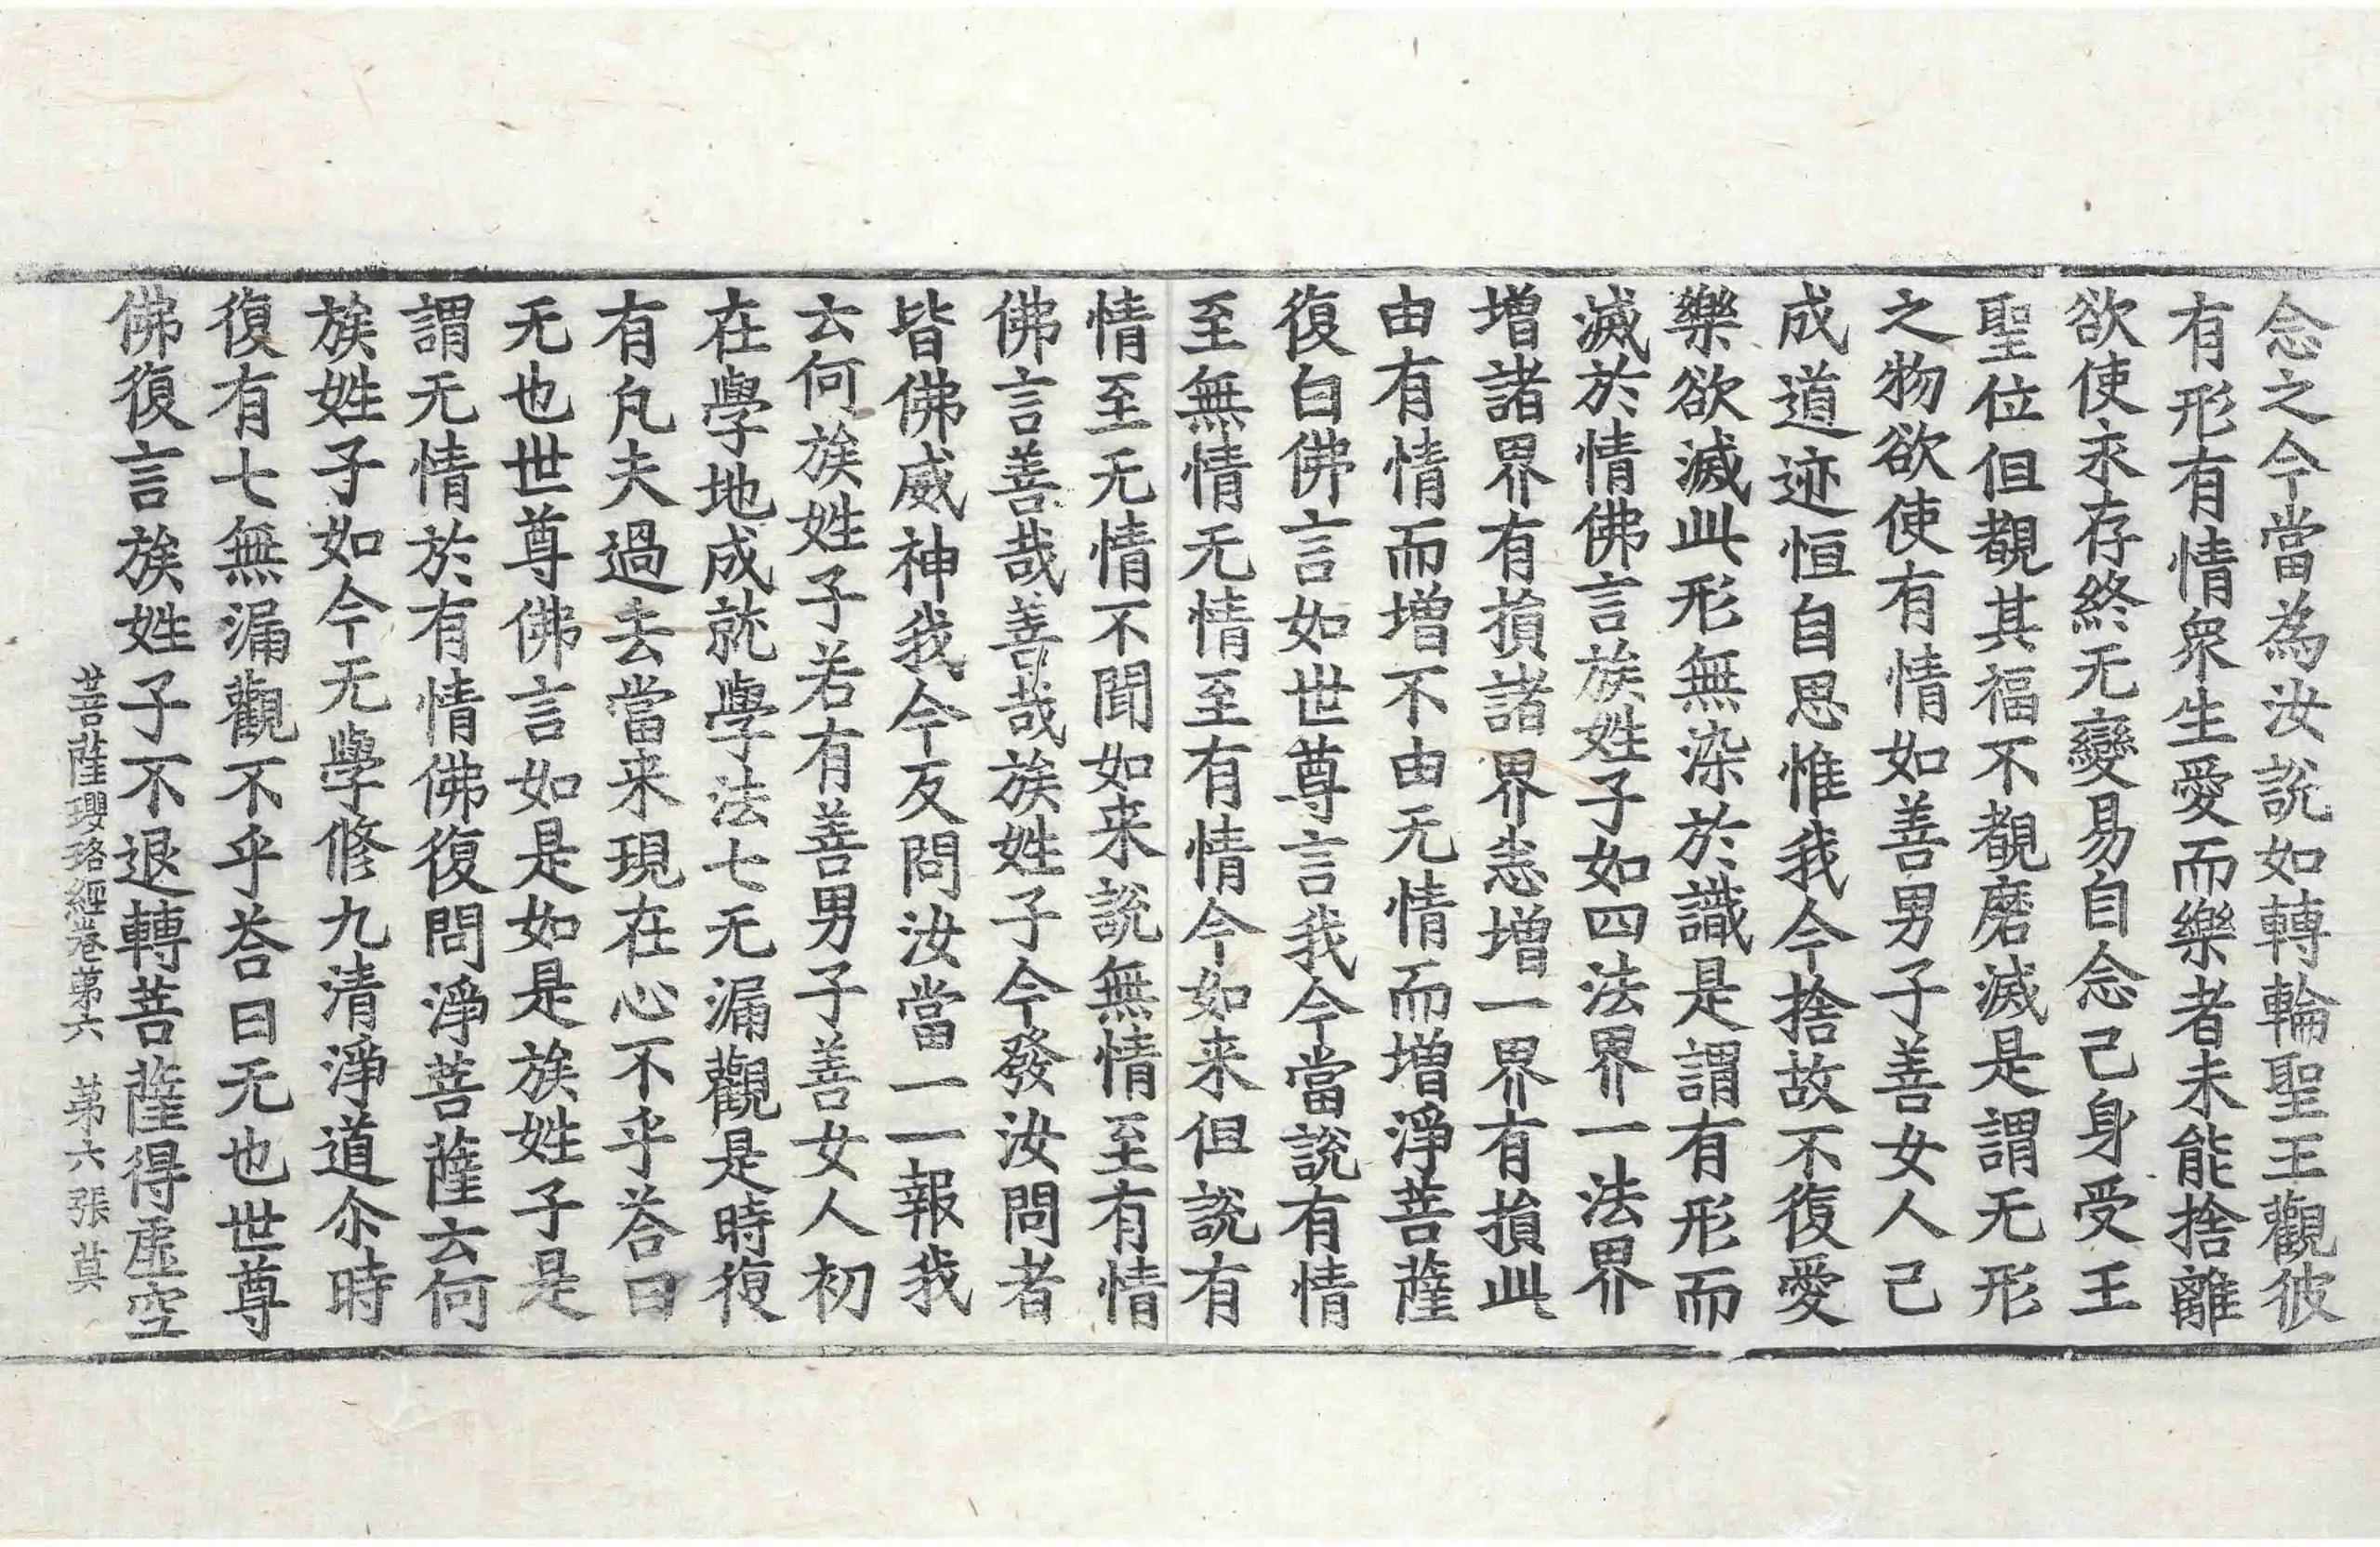 念之今當為汝說如轉輪聖王觀彼
有形有情衆生愛而樂者未能捨離
欲使永存終无變易自念己身受王
聖位但覩其福不覩磨滅是謂无形
之物欲使有情如善男子善女人己
成道迹恒自思惟我今捨故不復愛
樂欲滅此形無染於識是謂有形而
滅於情佛言族姓子如四法界一法界
增諸界有損諸界恚增一界有損此
由有情而增不由无情而增淨菩薩
復白佛言如世尊言我今當說有情
至無情无情至有情今如来但說有
情至无情不聞如来說無情至有情
佛言善哉善哉族姓子今發汝問者
皆佛威神我今反問汝當一一報我
云何族姓子若有善男子善女人初
在學地成就學法七无漏觀是時復
有凡夫過去當来現在心不乎荅曰
无也世尊佛言如是如是族姓子是
謂无情於有情佛復問淨菩薩云何
族姓子如今无學修九清淨道尒時
復有七無漏觀不乎荅曰无也世尊
佛復言族姓子不退轉菩薩得虛空
菩薩瓔珞經卷苐六 苐六張 莫